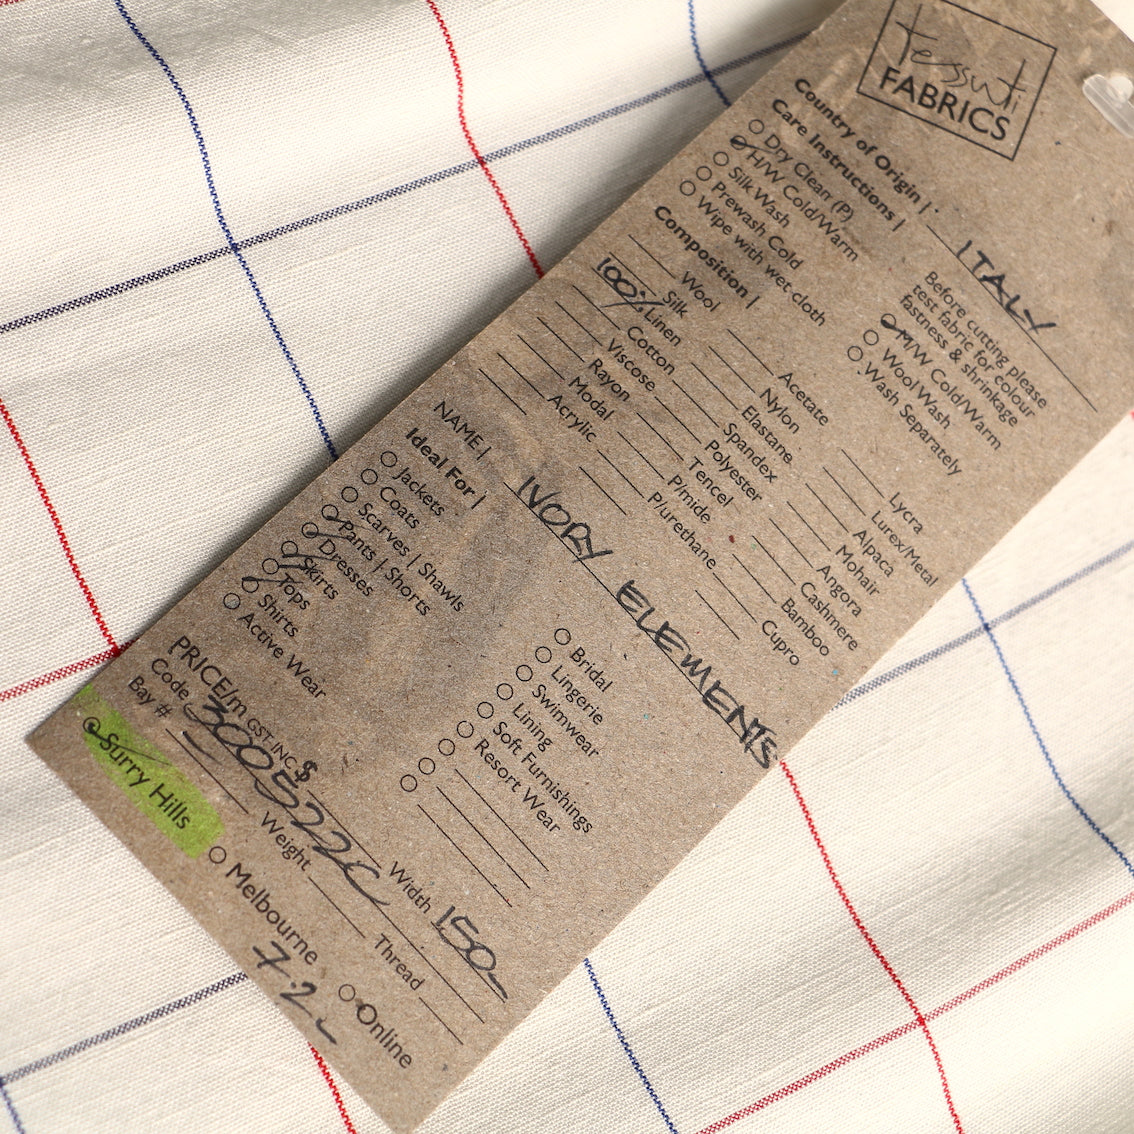 tessuti
FABRICS
Country of Origin | ITALY
Care Instructions |
Dry Clean (P)
H/W Cold/Warm
Silk Wash
Prewash Cold
Wipe with wet cloth
Before cutting please
test fabric for colour
fastness & shrinkage
M/W Cold/Warm
Wool Wash
Wash Separately
Composition |
Wool
Silk
100% Linen
Cotton
Viscose
Rayon
Modal
Acrylic
Acetate
Nylon
Elastane
Spandex
Polyester
Tencel
P/mide
P/urethane
Lycra
Lurex/Metal
Alpaca
Mohair
Angora
Cashmere
Bamboo
Cupro
NAME | IVORY ELEMENTS
Ideal For |
Jackets
Coats
Scarves | Shawls
Pants | Shorts
Dresses
Skirts
Tops
Shirts
Active Wear
Bridal
Lingerie
Swimwear
Lining
Soft Furnishings
Resort Wear
PRICE/m GST INC $
Code 300522C Width 150
Bay # Weight Thread
Surry Hills Melbourne Online
7.2